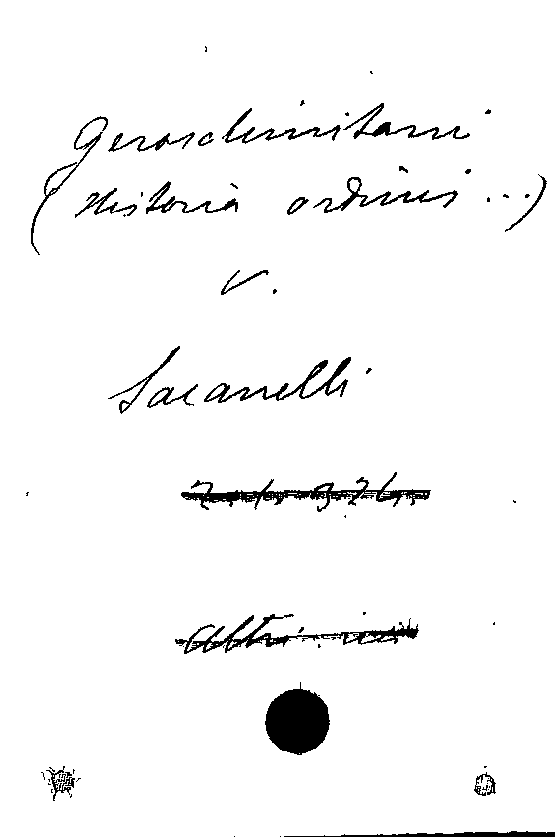 Gerosolimitani
(Historia ordinis ...)
v.
Sacanelli